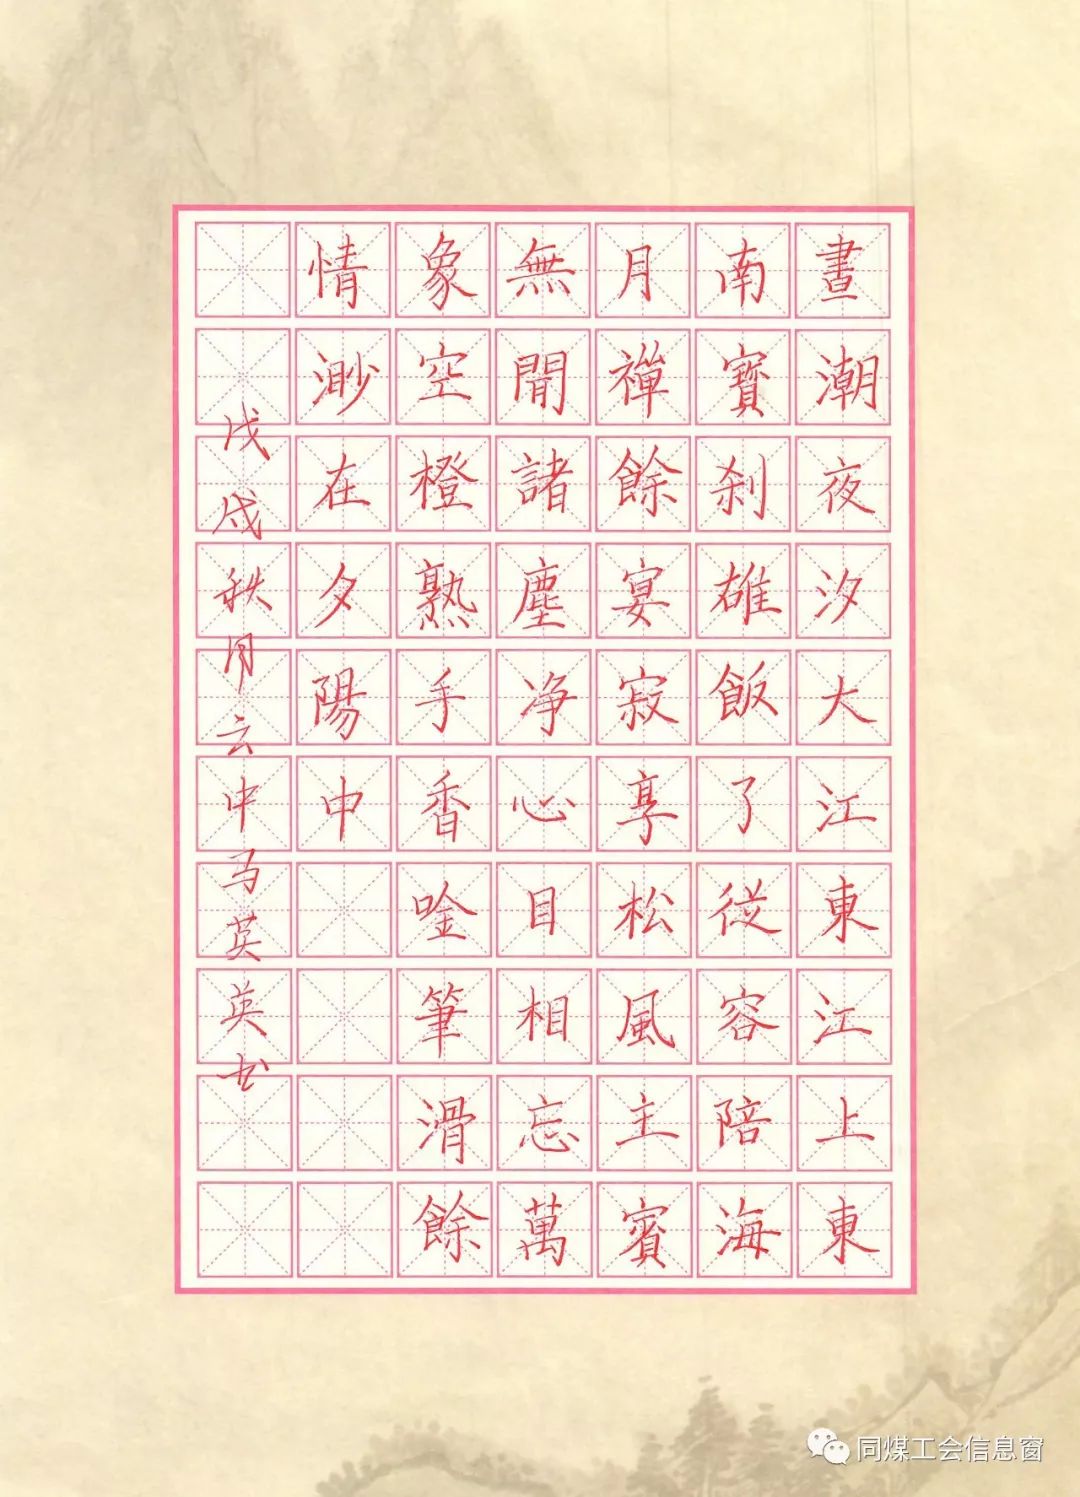 晝潮夜汐大江東江上東
南寶刹雄飯了從容陪海
月禪餘宴寂享松風主賓
無聞諸塵净心目相忘萬
象空橙熟手香唫筆滑餘
情渺在夕陽中
戊戌秋月云中马英英书
同煤工会信息窗